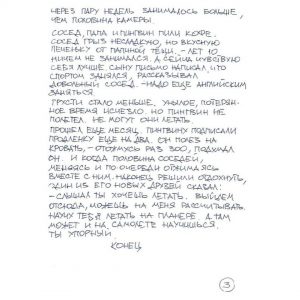 ЧЕРЕЗ ПАРУ НЕДЕЛЬ ЗАНИМАЛОСЬ БОЛЬШЕ,
ЧЕМ ПОЛОВИНА КАМЕРЫ.
СОСЕД, ПАПА И ПИНГВИН ПИЛИ КОФЕ.
СОСЕД ГРЫЗ НЕСЛАДКУЮ, НО ВКУСНУЮ
ПЕЧЕНЬКУ ОТ ПАПИНОЙ ТЁЩИ. - ЛЕТ 10
НИЧЕМ НЕ ЗАНИМАЛСЯ, А СЕЙЧАС ЧУВСТВУЮ
СЕБЯ ЛУЧШЕ, СЫНУ ПИСЬМО НАПИСАЛ ЧТО
СПОРТОМ ЗАНЯЛСЯ, РАССКАЗЫВАЛ
ДОВОЛЬНЫЙ СОСЕД. - НАДО ЕЩЕ АНГЛИЙСКИМ
ЗАНЯТЬСЯ
ГРУСТИ СТАЛО МЕНЬШЕ, УНЫЛОЕ, ПОТЕРЯН-
НОЕ ВРЕМЯ ИСЧЕЗЛО. НО ПИНГВИН НЕ
ПОЛЕТЕЛ. НЕ МОГУТ ОНИ ЛЕТАТЬ.
ПРОШЕЛ ЕЩЕ МЕСЯЦ. ПИНГВИНУ ПОДПИСАЛИ
ПРОДЛЕНКУ ЕЩЕ НА ДВА. ОН ПОЛЕЗ НА
КРОВАТЬ, - ОТОЖМУСЬ РАЗ 300, ПОДУМАЛ
ОН. И КОГДА ПОЛОВИНА СОСЕДЕЙ,
МЕНЯЯСЬ И ПО ОЧЕРЕДИ ОТЖИМАЯСЬ
ВМЕСТЕ С НИМ, НАКОНЕЦ РЕШИЛИ ОТДОХНУТЬ,
ОДИН ИЗ ЕГО НОВЫХ ДРУЗЕЙ СКАЗАЛ:
- СЛЫШАЛ ТЫ ХОЧЕШЬ ЛЕТАТЬ. ВЫЙДЕМ
ОТСЮДА, МОЖЕШЬ НА МЕНЯ РАССЧИТЫВАТЬ.
НАУЧУ ТЕБЯ ЛЕТАТЬ НА ПЛАНЕРЕ. А ТАМ
МОЖЕТ И НА САМОЛЕТЕ НАУЧИШЬСЯ,
ТЫ УПОРНЫЙ.
КОНЕЦ
3